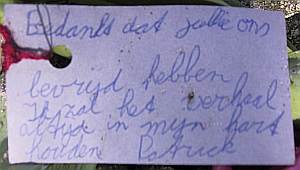 Bedankt dat jullie ons
bevryd hebben
Ik zal het verhaal
altyd in myn hart
houden Patrick